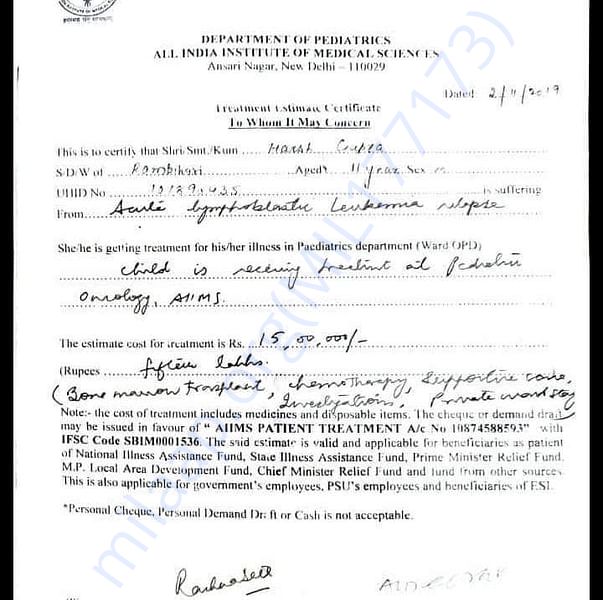 DEPARTMENT OF PEDIATRICS
ALL INDIA INSTITUTE OF MEDICAL SCIENCES
Ansari Nagar, New Delhi – 110029
Dated: 2/11/2019
Treatment Estimate Certificate
To Whom It May Concern
This is to certify that Shri/Smt./Kum ... Harsh Gupta
S/D/W of ... Aged ... 11 yrs Sex m
UHID No ... is suffering
From ... Acute lymphoblastic Leukemia relapse
She/he is getting treatment for his/her illness in Paediatrics department (Ward/OPD)
child is receiving treatment at Pediatric
Oncology, AIIMS.
The estimate cost for treatment is Rs. 15,00,000/-
(Rupees ... fifteen lakhs.
(Bone marrow transplant, chemotherapy, Supportive care,
Investigations, Private ward stay
Note:- the cost of treatment includes medicines and disposable items. The cheque or demand draft
may be issued in favour of “ AIIMS PATIENT TREATMENT A/c No 10874588593” with
IFSC Code SBIM0001536. The said estimate is valid and applicable for beneficiaries as patient
of National Illness Assistance Fund, State Illness Assistance Fund, Prime Minister Relief Fund,
M.P. Local Area Development Fund, Chief Minister Relief Fund and fund from other sources.
This is also applicable for government's employees, PSU's employees and beneficiaries of ESI.
*Personal Cheque, Personal Demand Draft or Cash is not acceptable.